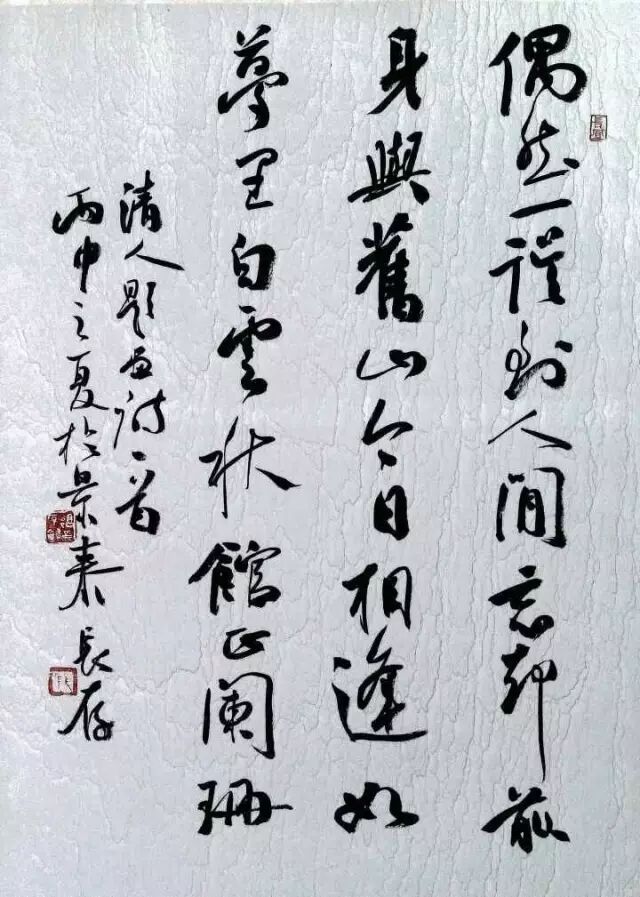 偶然一誤到人間忘却前
身與舊山今日相逢如
夢里白雲秋館正闌珊
清人題畫詩一首
丙申之夏於景泰長存